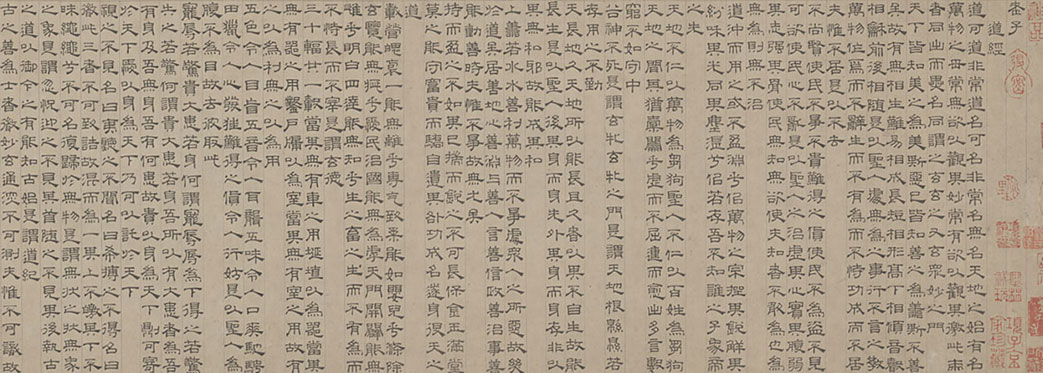 老子
道經
道可道非常道名可名非常名無名天地之始有名
萬物之母常無欲以觀其妙常有欲以觀其徼此兩
者同出而異名同謂之玄玄之又玄衆妙之門
天下皆知美之為美斯惡已皆知善之為善斯不善
矣故有無相生難易相成長短相形高下相傾音聲
相龢前後相隨是以聖人處無為之事行不言之教
萬物作焉而不辭生而不有為而不恃功成不居夫
惟不居是以不去
不尚賢使民不爭不貴難得之貨使民不為盜不見
可欲使民心不亂是以聖人之治虛其心實其腹弱
其志強其骨常使民無知無欲使夫知者不敢為也
為無為則無不治
道沖而用之或不盈淵乎似萬物之宗挫其銳解其
紛和其光同其塵湛兮似若存吾不知誰之子象帝
之先
天地不仁以萬物為芻狗聖人不仁以百姓為芻狗
天地之間其猶橐籥乎虛而不屈動而愈出多言數
窮不如守中
谷神不死是謂玄牝玄牝之門是謂天地根緜緜若
存用之不勤
天長地久天地所以能長且久者以其不自生故能
長生是以聖人後其身而身先外其身而身存非以
其無私邪故能成其私
上善若水水善利萬物而不爭處衆人之所惡故幾
於道矣居善地心善淵與善人言善信政善治事善
能動善時夫惟不爭故無尤矣
持而盈之不如其已揣而銳之不可長保金玉滿堂
莫之能守富貴而驕自遺其咎功成名遂身退天之
道
載營魄裒一能無離乎專氣致柔能如嬰兒乎滌除
玄覽能無疵乎愛民治國能無為乎天門開闔能無
雌乎明白四達能無知乎生之畜之生而不有為而
不恃長而不宰是謂玄德
三十輻共一轂當其無有車之用埏埴以為器當其
無有器之用鑿戶牖以為室當其無有室之用故有
之以為利無之以為用
五色令人目盲五音令人耳聾五味令人口爽馳騁
田獵令人心發狂難得之貨令人行妨是以聖人為
腹不為目故去彼取此
寵辱若驚貴大患若身何謂寵辱辱為下得之若驚
失之若驚何謂貴大患若身吾所以有大患者為吾
有身及吾無身吾有何患故貴以身為天下可寄
於天下愛以身為天下乃可以託於天下
視之不見名曰夷聽之不聞名曰希搏之不得名曰
微此三者不可致詰故混而為一其上不皦其下不
昧繩繩兮不可名復歸於無物是謂無狀之狀無象
之象是謂忽怳迎之不見其首隨之不見其後執古
之道以御今之有能知古始是謂道紀
古之善為士者微妙玄通深不可測夫惟不可識故